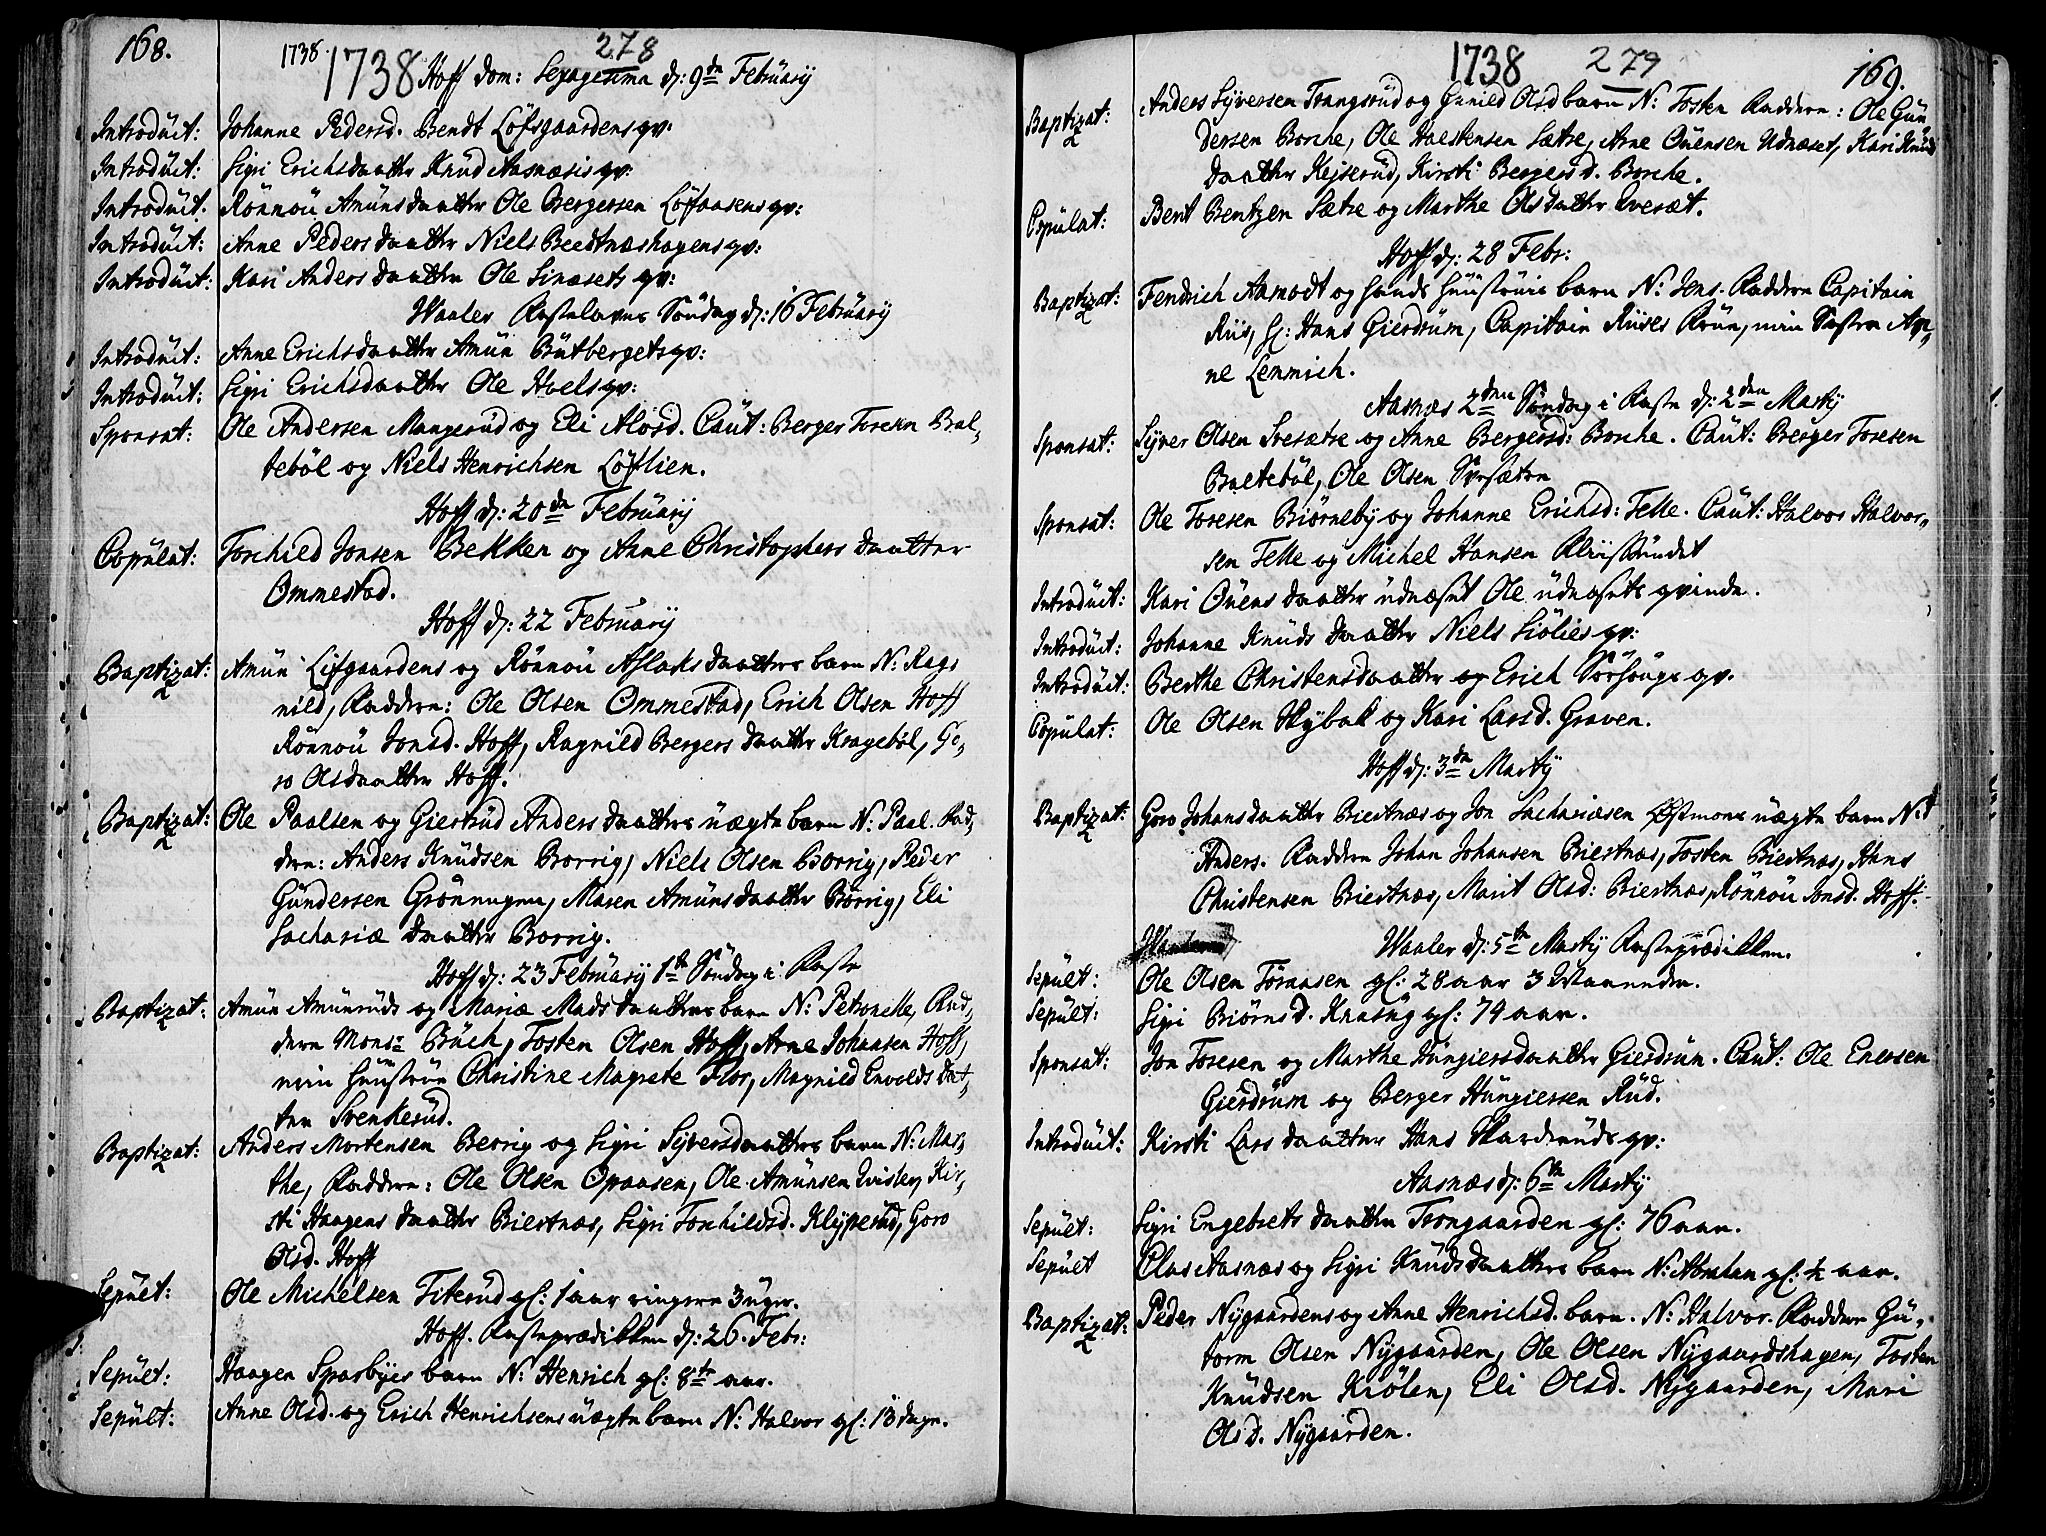 168.
1738.
1738
278
Hoff Dom: Sexagesima d: 9de Februarij
Introduit: Johanne Pedersd. Bendt Löfsgaardens qv:
Introduit: Sigri Erichsdaatter Knud Aasnæsis qv:
Introduit. Rönnou Amunsdaatter Ole Bergersen Löfaasens qv:
Introduit: Anne Pedersdaatter Niels Beedtnæshagens qv:
Introduit: Kari Andersdaatter Ole Sinæsets qv:
Waaler Fastelavns Söndag d: 16 Februarij
Introduit: Anne Erichsdaatter Amun Butbergets qv:
Introduit: Sigri Erichsdaatter Ole Hoels qv:
Sponsat: Ole Andersen Mangerud og Eli Alosd. Caut: Berger Toresen Bal-
teböl og Niels Henrichsen Löflien.
Hoff d: 20de Februarij
Copulat: Torchild Jonsen Bekken og Anne Christophersdaatter
Ommestad.
Hoff d: 22 Februarij
Baptizat: Amun Löfgaardens og Rönnou Aslaksdaatters barn N: Rag-
2
nild, Faddere: Ole Olsen Ommestad, Erich Olsen Hoff
Rönnou Jonsd. Hoff, Ragnild Bergersdaatter Krageböl, Go-
ro Olsdaatter Hoff.
Baptizat: Ole Paalsen og Giertrud Andersdaatters uægte barn N: Paal. Fad-
2
dere: Anders Knudsen Borrig, Niels Olsen Borrig, Peder
Gundersen Grönnungen, Maren Amunsdaatter Borrig, Eli
Sachariæ daatter Borrig.
Hoff d: 23 Februarij 1te Söndag i Faste
Baptizat: Amun Amunruds og Mariæ Madsdaatters barn N: Petronelle, Fad-
2
dere Monsr Buch, Tosten Olsen Hoff, Arne Johansen Hoff,
min Huustrue Christine Magrete Flor, Magnild Envoldsdat-
ter Svenkerud.
Baptizat: Anders Mortensen Berrig og Sigri Syversdaatters barn N: Mar-
2
the, Faddere: Ole Olsen Opaasen, Ole Amunsen Qvisler, Kir-
sti Haagensdaatter Biertnæs, Sigri Torchildsd. Klyperud, Goro
Olsd. Hoff
Sepult: Ole Michelsen Titerud gl: 1 aar ringere 3 uger.
Hoff. Fasteprædikken d: 26. Febr:
Sepult: Haagen Sparbyes barn N: Henrich gl: 8te aar.
Sepult: Anne Olsd. og Erich Henrichsens uægte barn N: Halvor gl: 13 dage.
1738
279
169.
Baptizat: Anders Syversen Trangsrud og Gunild Olsd barn N: Tosten Faddere: Ole Gun-
2
dersen Borche, Ole Halstensen Sætre, Arne Ouensen Udnæset, Kari Knuds
daatter Kejserud, Kirsti Bergersd. Borche.
Copulat: Bent Bentzen Sætre og Marthe Olsdatter Qveset.
Hoff d: 28 Febr:
Baptizat: Fendrich Aamodt og hands Huustrues barn N: Jens. Faddere Capitain
2
Riis, Hr: Hans Gierdrum, Capitain Riises Frue, min Søster An-
ne Lemmich.
Aasnæs 2den Söndag i Faste d: 2den Martij
Sponsat: Syver Olsen Svesætre og Anne Bergersd: Borche. Caut: Berger Toresen
Balteböl, Ole Olsen Svesætre
Sponsat: Ole Toresen Biörneby og Johanne Erichsd: Felle. Caut: Halvor Halvor-
sen Felle og Michel Hansen Fliisundet
Introduit: Kari Ouensdaatter Udnæset Ole Udnæsets qvinde.
Introduit: Johanne Knudsdaatter Niels Siölies qv:
Introduit: Berthe Christensdaatter og Erich Sörhougs qv.
Copulat: Ole Olsen Skybak og Kari Larsd. Graven.
Hoff d: 3de Martij
Baptizat: Goro Johansdaatter Biertnæs og Jon Sachariæsen Østmoes uægte barn N:
2
Anders. Faddere Johan Johansen Biertnæs, Tosten Biertnæs, Hans
Christensen Biertnæs, Marit Olsd: Biertnæs, Rönnou Jonsd. Hoff.
Waaler d: 5te Martij Fasteprædikken.
Sepult: Ole Olsen Töraasen gl: 28 aar 3 Maaneder.
Sepult: Sigri Biörnsd. Knashug gl: 79 aar.
Sponsat: Jon Toresen og Marthe Hungiersdaatter Gierdrum. Caut: Ole Enersen
Gierdrum og Berger Hungiersen Rud.
Introduit: Kirsti Larsdaatter Hans Skarderuds qv:
Aasnæs d: 6te Martij
Sepult: Sigri Engebretsdaatter Trongaarden gl: 76 aar.
Sepult Clas Aasnæs og Sigri Knudsdaatters barn N: Abraham gl: ½ aar.
Baptizat: Peder Nygaardens og Anne Henrichsd. barn. N: Halvor. Faddere Gu-
2
torm Olsen Nygaarden, Ole Olsen Nygaardshagen, Tosten
Knudsen Kiölen, Eli Olsd. Nygaarden, Mari
Olsd. Nygaarden.